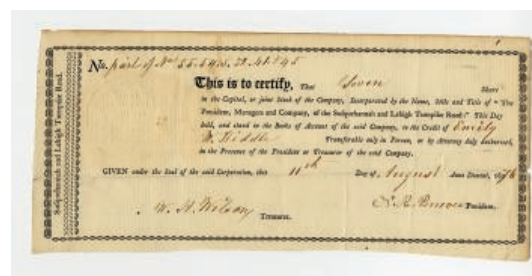 Susquehannah and Lehigh Turnpike Road.
No. part of No
This is to certify, That Seven Share
in the Capital, or joint Stock of the Company, Incorporated by the Name, Stile and Title of "The
President, Managers and Company, of the Susquehannah and Lehigh Turnpike Road:" This Day
held, and stand in the Books of Account of the said Company, to the Credit of Emily
Biddle Transferable only in Person, or by Attorney duly authorised,
in the Presence of the President or Treasurer of the said Company.
GIVEN under the Seal of the said Corporation, this 11th Day of August Anno Domini, 18
W. H. Wilson Treasurer. President.